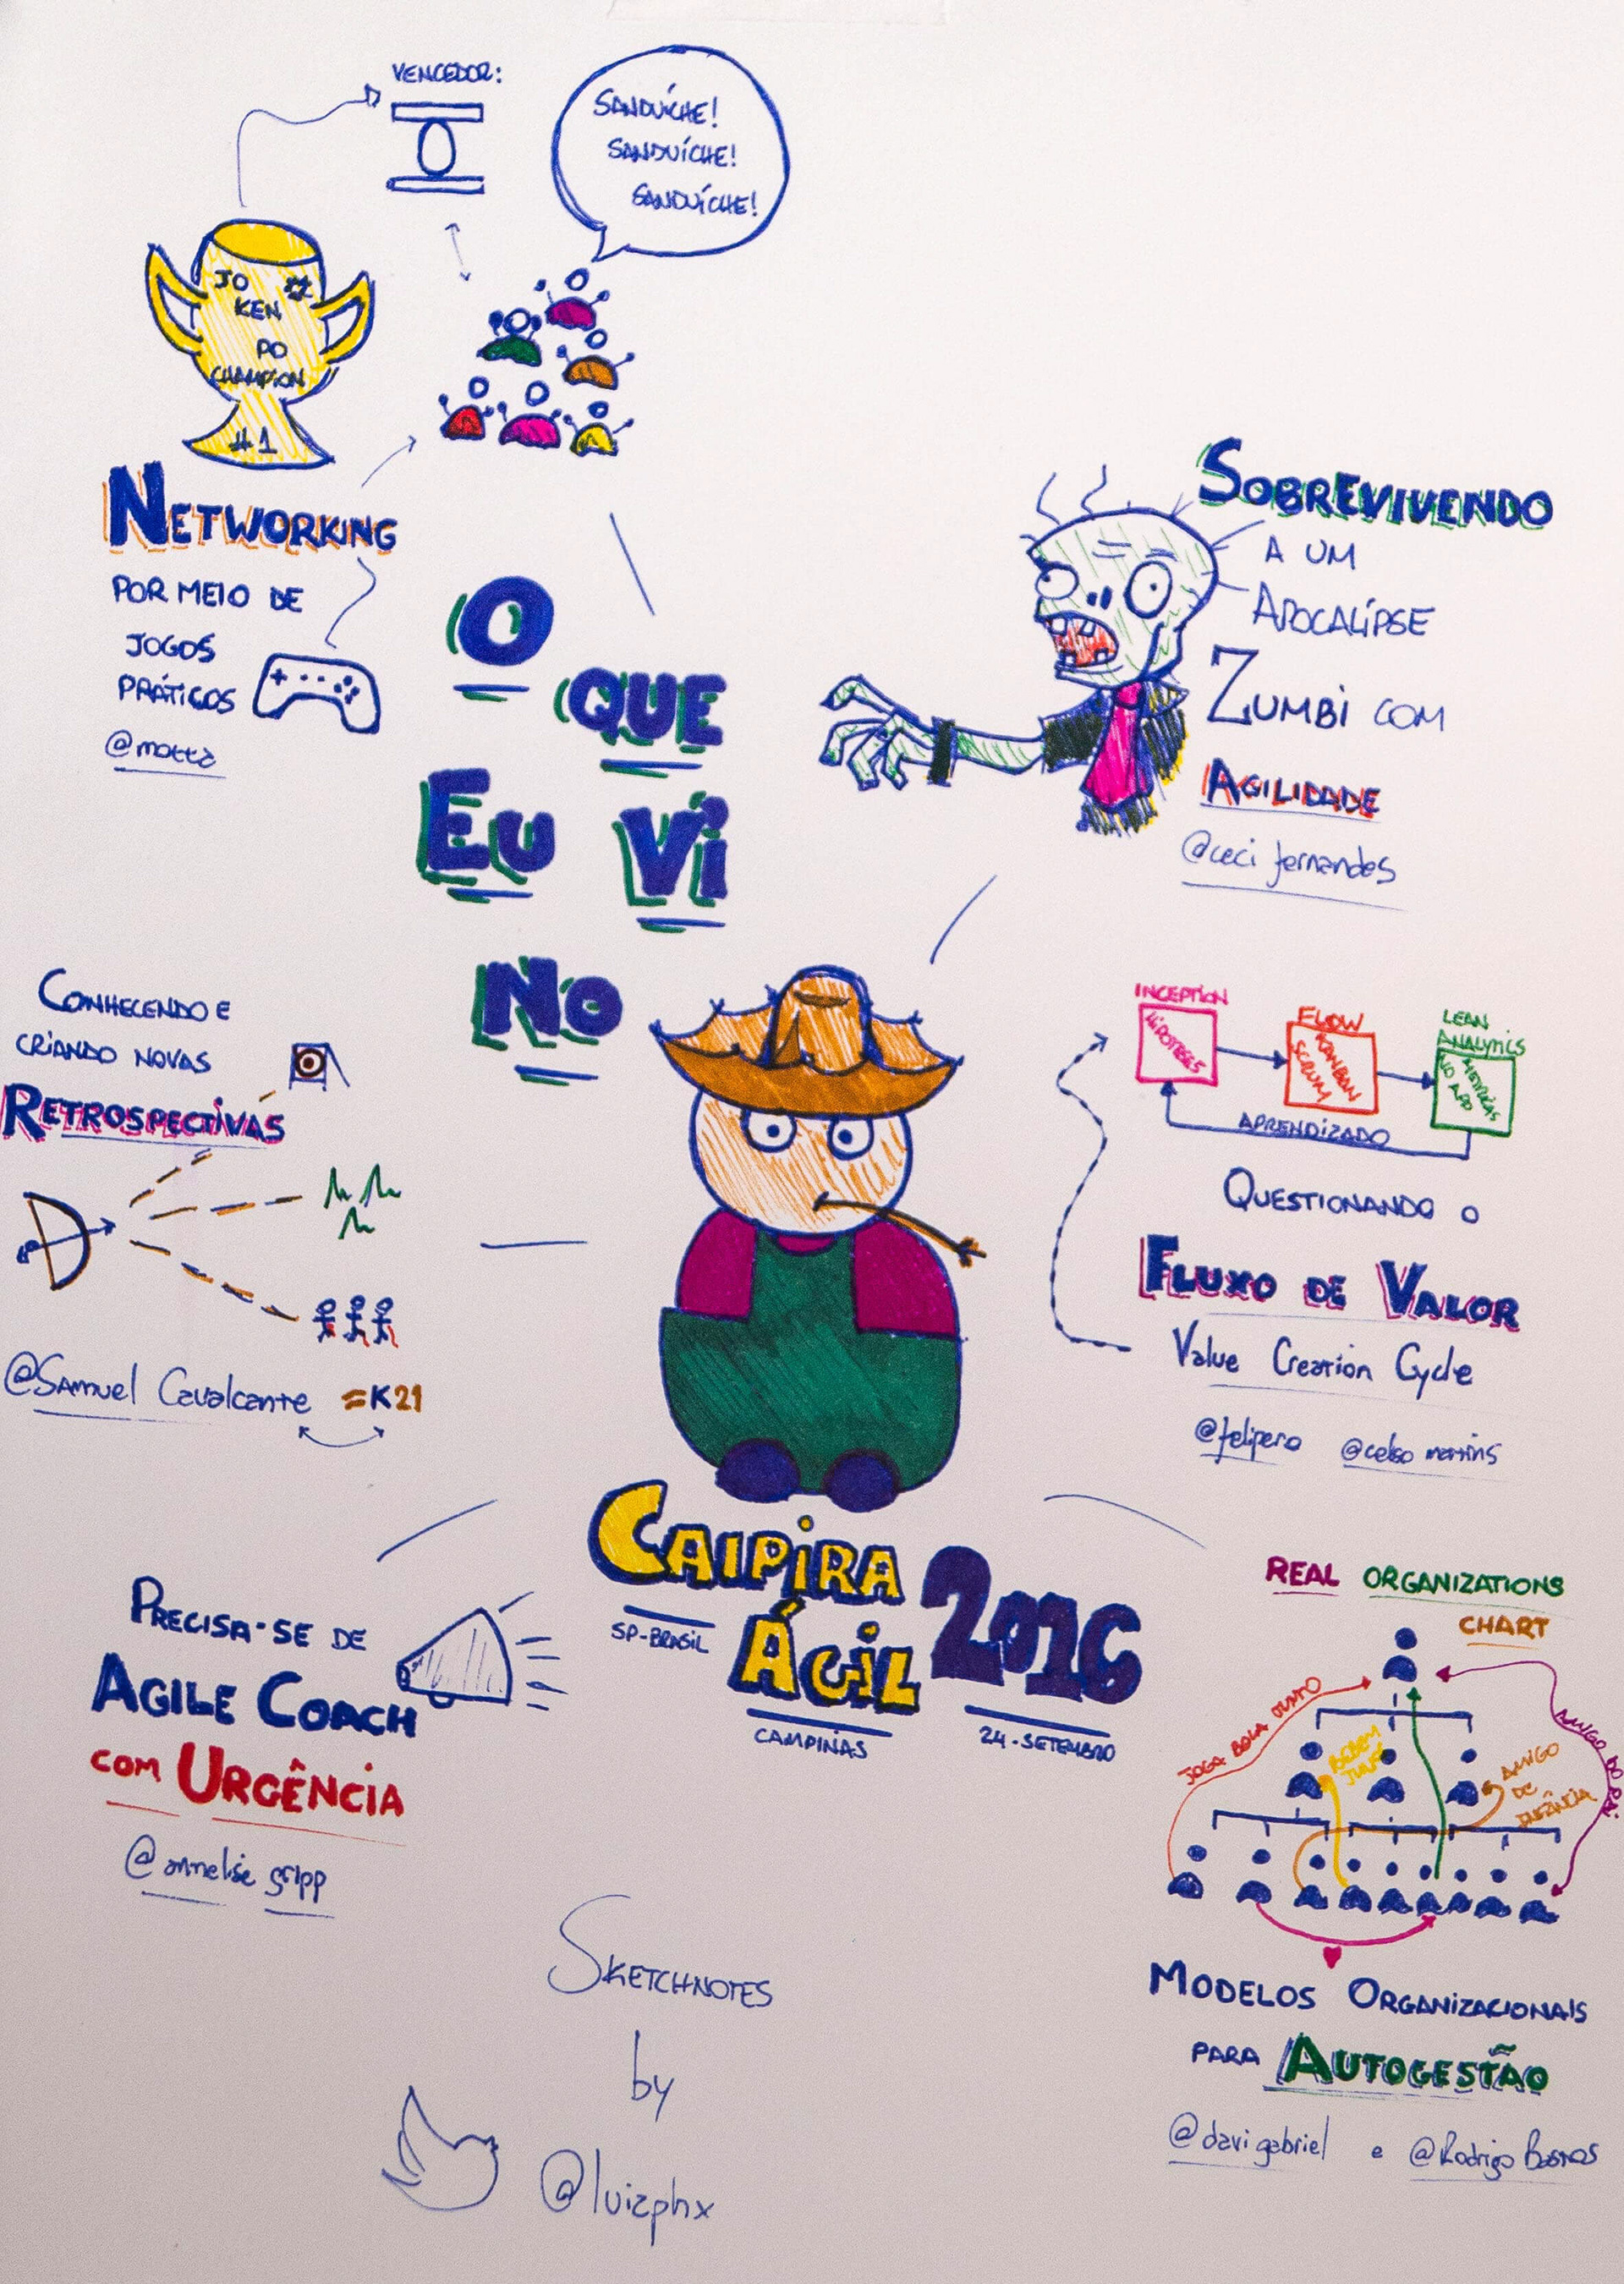 VENCEDOR:
SANDUÍCHE!
SANDUÍCHE!
SANDUÍCHE!
JO
KEN
PO
CHAMPION
#1
NETWORKING
POR MEIO DE
JOGOS
PRÁTICOS
@motta
O
QUE
EU VI
NO
SOBREVIVENDO
A UM
APOCALÍPSE
ZUMBI COM
AGILIDADE
@ceci fernandes
CONHECENDO E
CRIANDO NOVAS
RETROSPECTIVAS
@SAMUEL Cavalcante =K21
INCEPTION
HIPÓTESES
FLOW
KANBAN
SCRUM
LEAN
ANALYTICS
MÉTRICAS
NO APP
APRENDIZADO
QUESTIONANDO O
FLUXO DE VALOR
Value Creation Cycle
@felipero @celso martins
CAIPIRA
ÁGIL
2016
SP-BRASIL
CAMPINAS
24-SETEMBRO
PRECISA-SE DE
AGILE COACH
COM URGÊNCIA
@annelise gripp
REAL ORGANIZATIONS
CHART
JOGA BOLA JUNTO
BEBEM
JUNTOS
AMIGO
DE
INFÂNCIA
AMIGO DO PAI
MODELOS ORGANIZACIONAIS
PARA AUTOGESTÃO
@davi gabriel e @Rodrigo
SKETCHNOTES
by
@luizphx